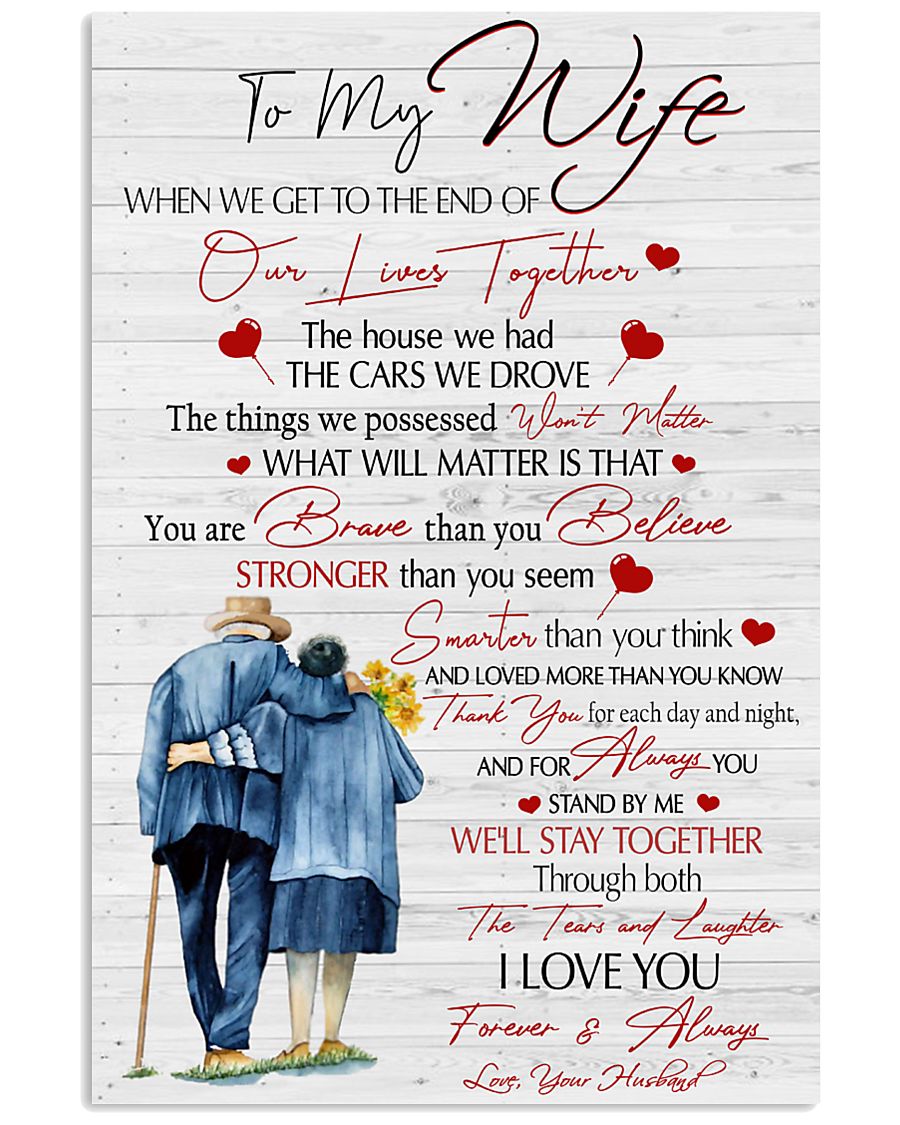 To My Wife
WHEN WE GET TO THE END OF
Our Lives Together
The house we had
THE CARS WE DROVE
The things we possessed Won't Matter
WHAT WILL MATTER IS THAT
You are Brave than you Believe
STRONGER than you seem
Smarter than you think
AND LOVED MORE THAN YOU KNOW
Thank You for each day and night,
AND FOR Always YOU
STAND BY ME
WE'LL STAY TOGETHER
Through both
The Tears and Laughter
I LOVE YOU
Forever & Always
Love, Your Husband